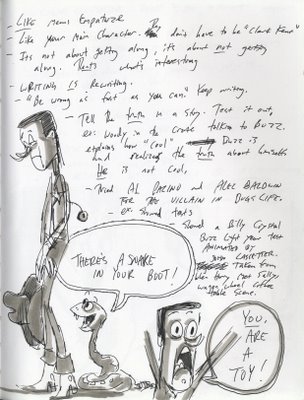 - Like
- Like your Main Character. They don't have to be "Clark Kent"
- Its not about getting along, its about not getting
along. Thats what's interesting
- WRITING IS Rewriting.
- "Be wrong as fast as you can." Keep writing.
- Tell the truth in a story. Test it out,
ex: woody in the crane talkin to Buzz.
explains how "cool" Buzz is
and realizes the truth about himself
He is not cool,
- Tried AL PACINO and ALEC BALDWIN
FOR THE VILLAIN IN BUGS LIFE.
- ex. Showed tests
- Showed a Billy Crystal
Buzz Light year test
ANIMATED BY
JOHN LASSETER.
Taken from
When Harry Met Sally
wagon wheel coffee
table scene.
THERE'S A SNAKE
IN YOUR BOOT!
YOU.
ARE
A
TOY!